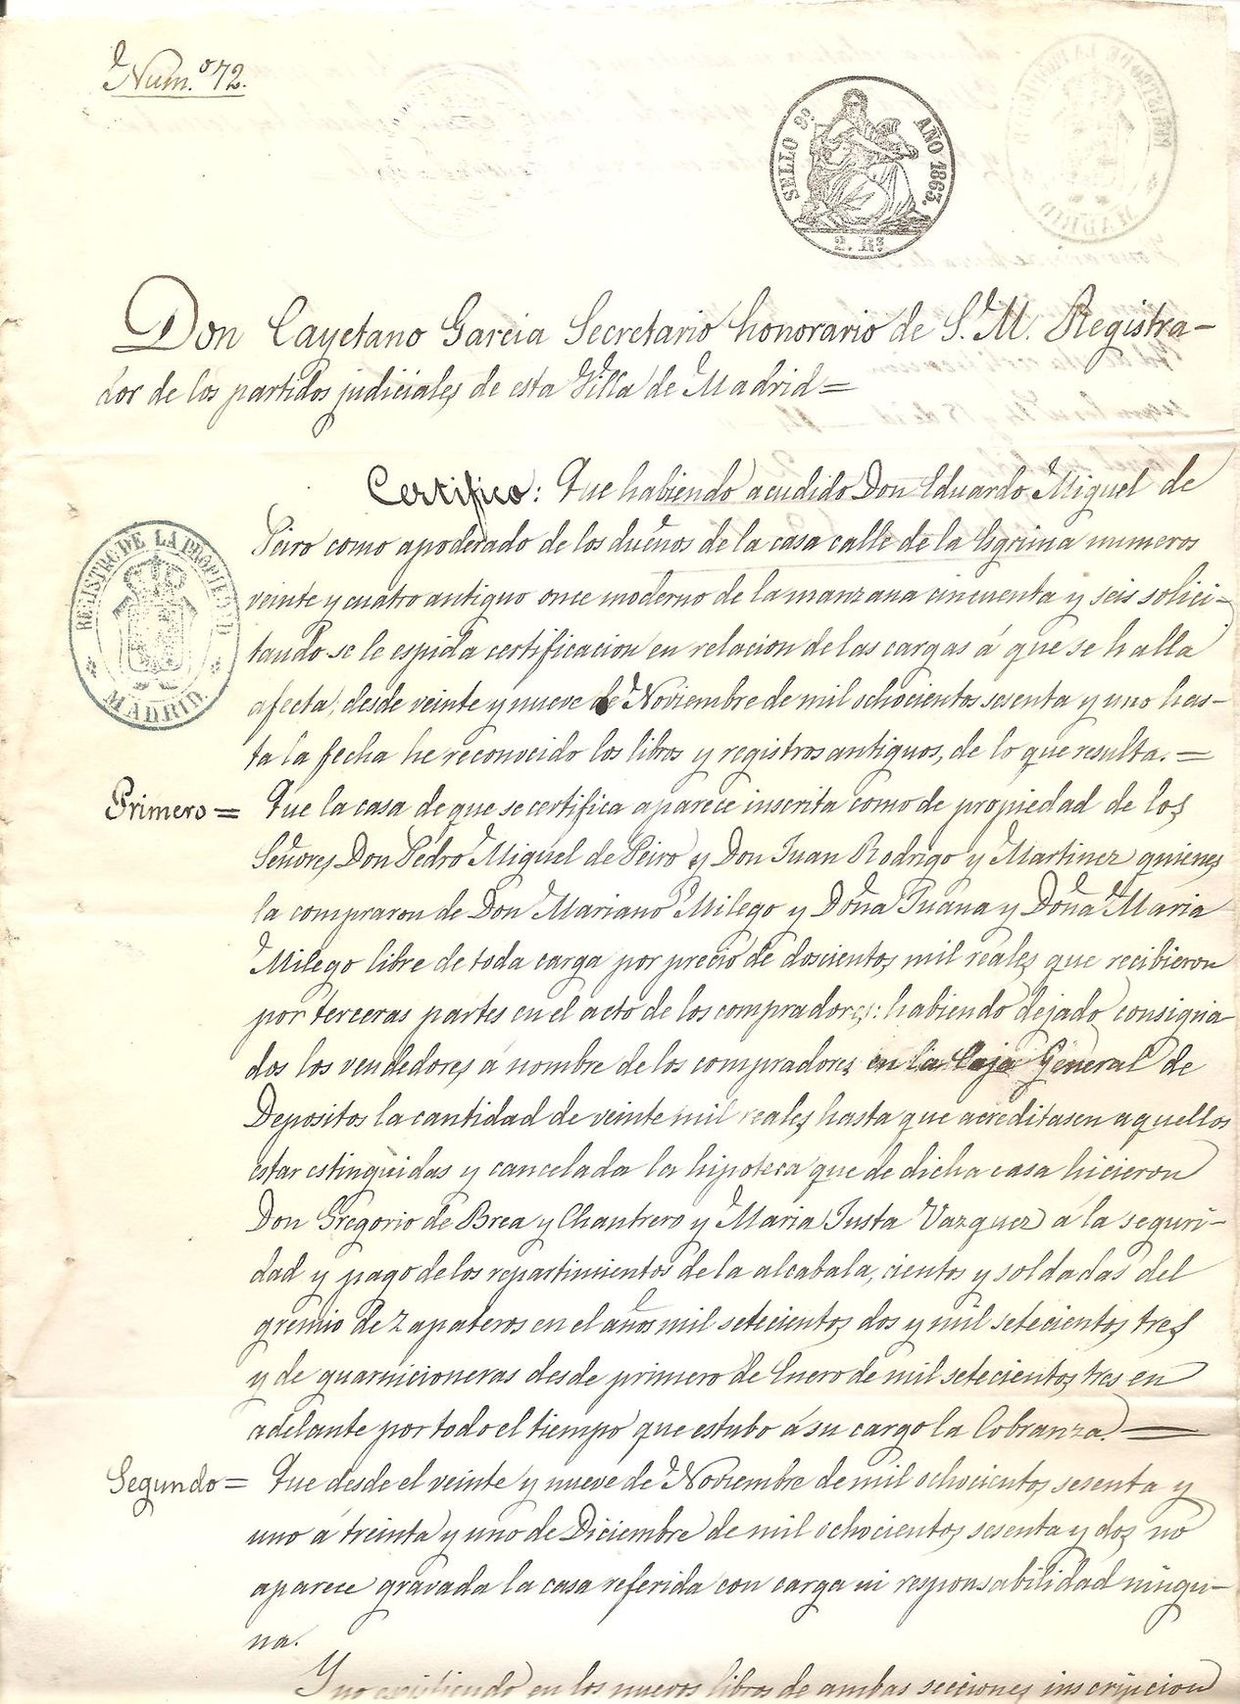 Num.º 72.
SELLO 9º AÑO 1863.
2. Rs
Don Cayetano Garcia Secretario honorario de S. M. Registra-
dor de los partidos judiciales de esta Villa de Madrid =
Certifico: Que habiendo acudido Don Eduardo Miguel de
Peiro como apoderado de los dueños de la casa calle de la Esgrima numeros
veinte y cuatro antiguo once moderno de la manzana cincuenta y seis solici-
tando se le espida certificacion en relacion de las cargas á que se halla
afecta, desde veinte y nueve de Noviembre de mil ochocientos sesenta y uno has-
ta la fecha he reconocido los libros y registros antiguos, de lo que resulta. =
REGISTRO DE LA PROPIEDAD
MADRID
Primero = Que la casa de que se certifica aparece inscrita como de propiedad de los
Señores Don Pedro Miguel de Peiro y Don Juan Rodrigo y Martinez quienes
la compraron de Don Mariano Milego y Doña Juana y Doña Maria
Milego libre de toda carga por precio de doscientos mil reales que recibieron
por terceras partes en el acto de los compradores: habiendo dejado consigna-
dos los vendedores á nombre de los compradores en la Caja General de
Depositos la cantidad de veinte mil reales hasta que acreditasen aquellos
estar estinguidas y cancelada la hipoteca que de dicha casa hicieron
Don Gregorio de Brea y Chantrero y Maria Justa Vazquez á la seguri-
dad y pago de los repartimientos de la alcabala, cientos y soldadas del
gremio de Zapateros en el años mil setecientos dos y mil setecientos tres
y de guarnicioneros desde primero de Enero de mil setecientos tres en
adelante por todo el tiempo que estubo á su cargo la Cobranza. =
Segundo = Que desde el veinte y nueve de Noviembre de mil ochocientos sesenta y
uno á treinta y uno de Diciembre de mil ochocientos sesenta y dos no
aparece gravada la casa referida con carga ni responsabilidad ningu-
na.
Y no existiendo en los nuevos libros de ambas secciones inscripcion